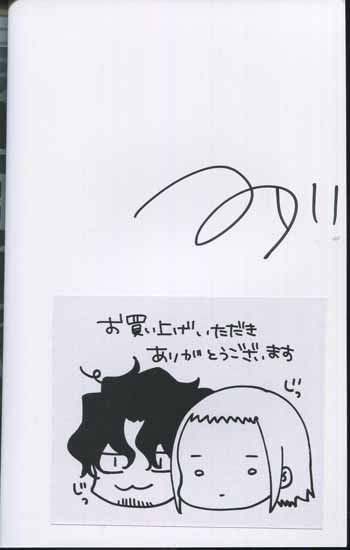 お買い上げいただき
ありがとうございます
じっ
じっ